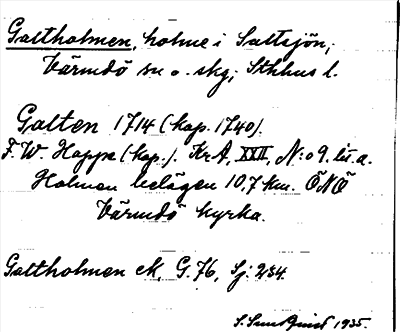 Galtholmen, holme i Saltsjön,
Värmdö sn o. skg; Sthlms l.
Galten 1714 (kop. 1740).
F. W. Hoppe (kop.). KrA, XXII, N:o 9. lit. a.
Holmen belägen 10,7 km. ÖNÖ
Värmdö kyrka.
Galtholmen ek. G. 76, Sj. 234.
S. Sundquist 1935.